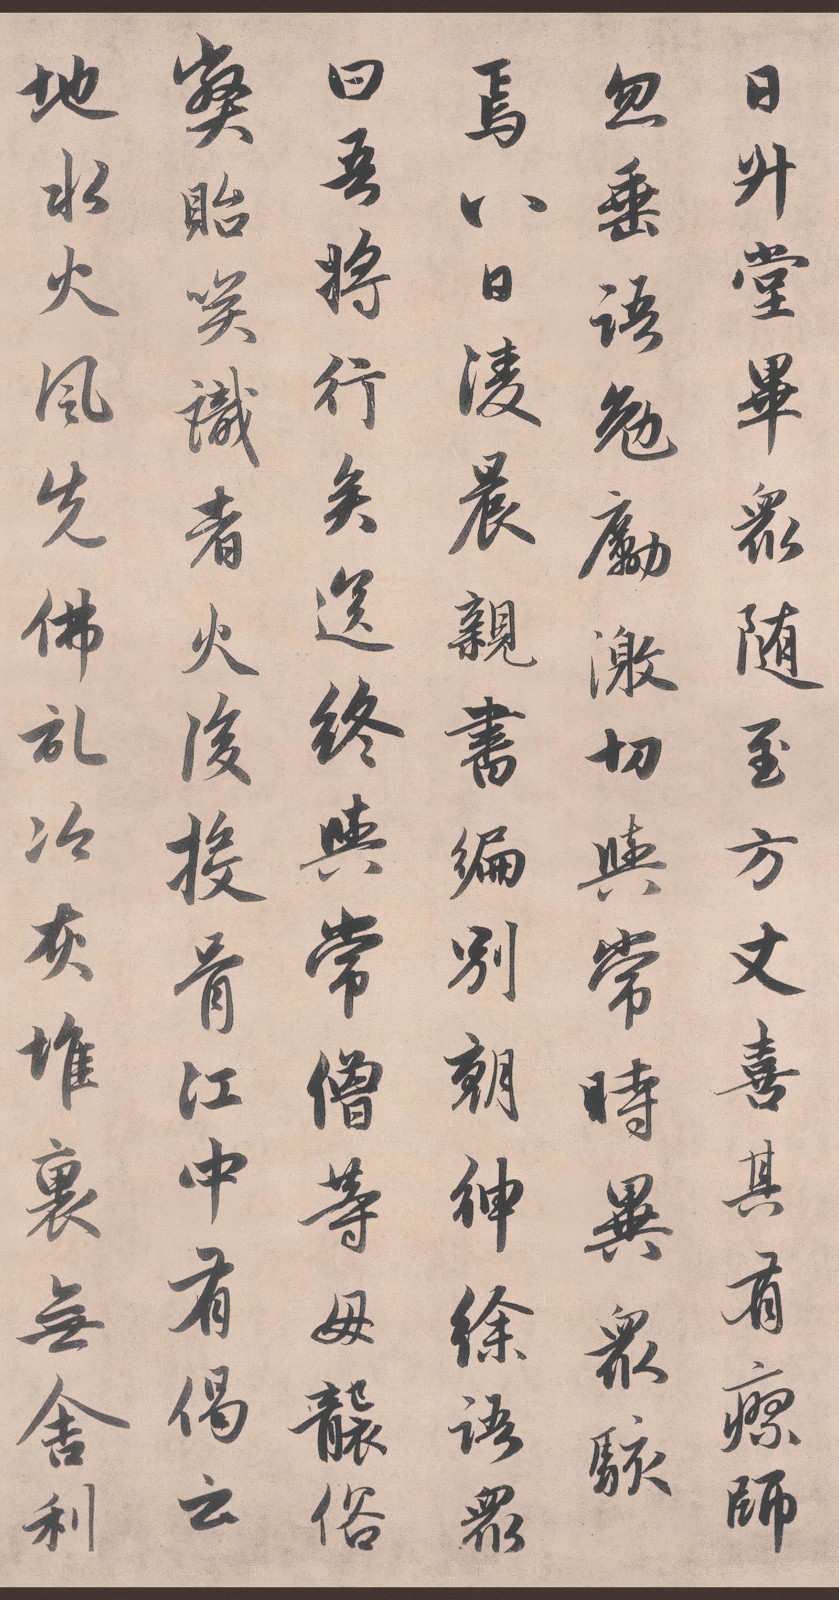 日升堂畢眾随至方丈喜其有瘳師
忽垂語勉勵激切與常時異眾駭
焉八日凌晨親書編別朝紳徐語眾
曰吾將行矣送終與常僧等毋襲俗
獘貽笑識者火後投骨江中有偈云
地水火風先佛記冷灰堆裏無舍利